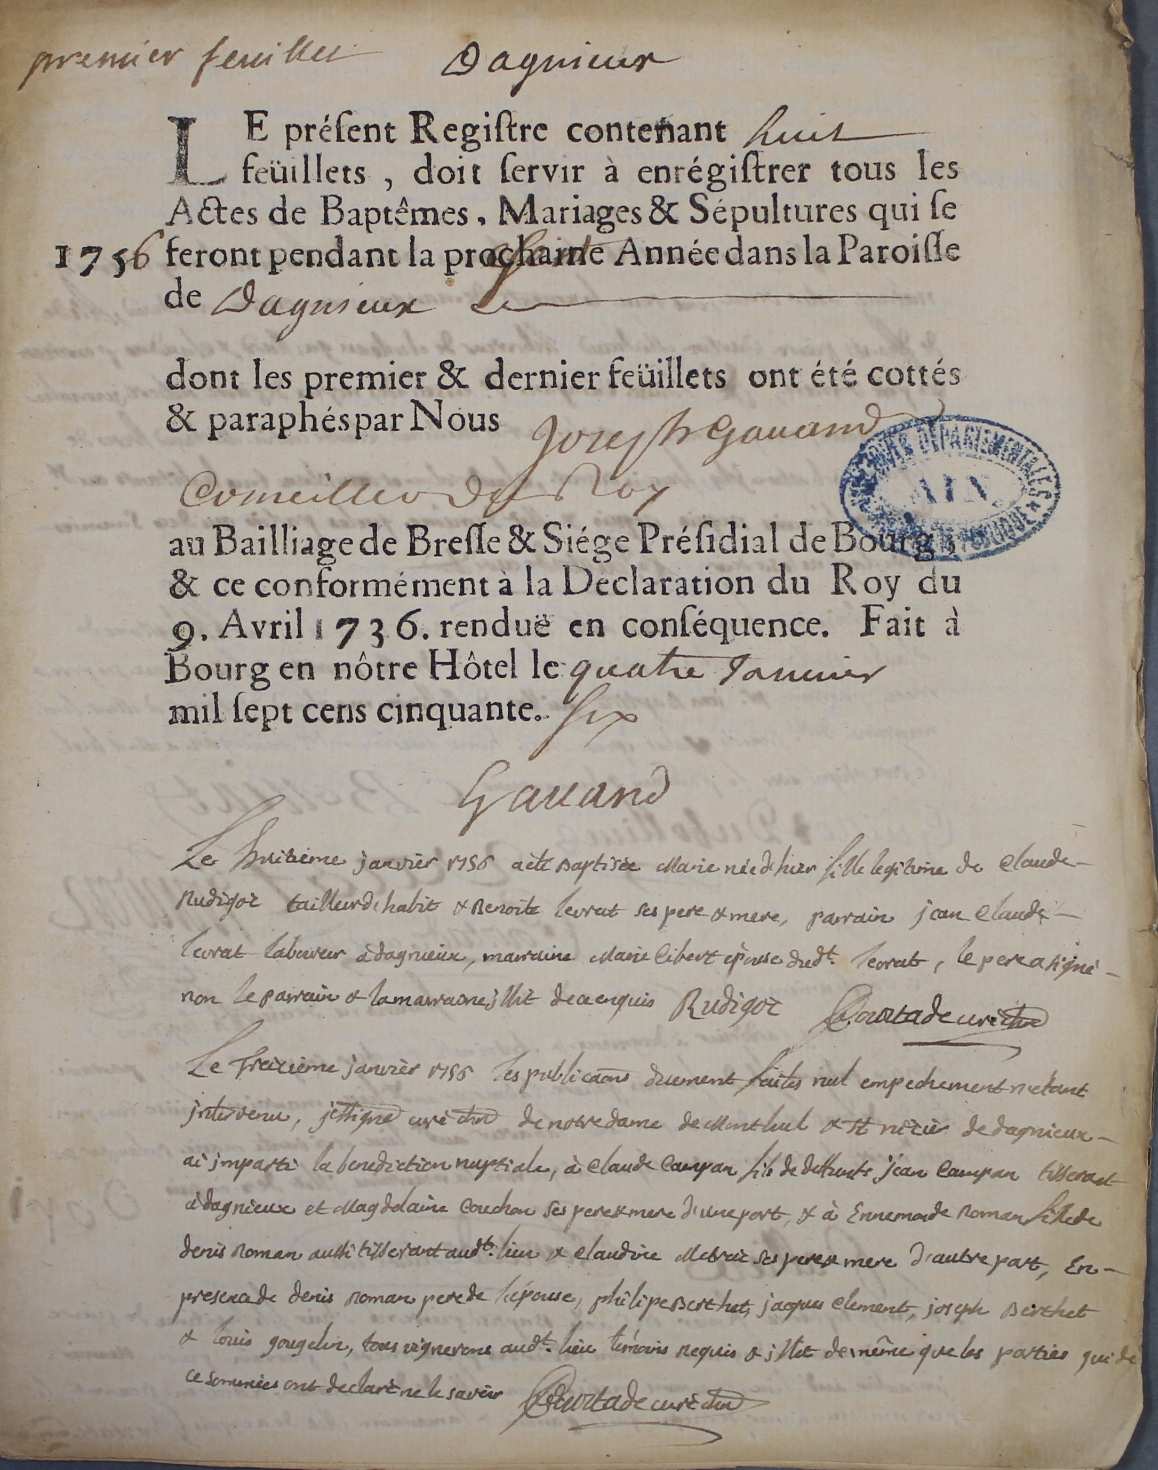 premier feuillet Dagnieux
LE préſent Regiſtre contenant huit
feüillets , doit ſervir à enrégiſtrer tous les
Actes de Baptêmes, Mariages & Sépultures qui ſe
1756 feront pendant la prochaine Année dans la Paroiſſe
de Dagnieux
dont les premier & dernier feüillets ont été cottés
& paraphés par Nous Joseph Gauand
Conseiller du Roy
ARCHIVES DÉPARTEMENTALES
AIN
au Bailliage de Breſſe & Siége Préſidial de Bourg,
& ce conformément à la Déclaration du Roy du
9. Avril 1736. renduë en conſéquence. Fait à
Bourg en nôtre Hôtel le quatre Januier
mil ſept cens cinquante. six
Gauand
Le huitième janvièr 1756 a été Baptisée Marie née d'hier fille legitime de Claude
Rudigoz tailleur d'habit & Benoite levrat ses pere & mere, parrain jean Claude
levrat laboureur à dagnieux, marraine Marie Libert épouse dudt. levrat, le pere a signé
non le parrain & la marraine, de ce enquis Rudigoz Courtade curé
Le treizième janvièr 1756 les publicaons duement faites nul empechement n'etant
intervenu, curé de notre dame de Montluel & st nizièr de dagnieux
ai imparti la benediction nuptiale, à Claude Campan fils de deffunts jean Campan tisserant
à dagnieux et Magdelaine Couchou ses pere & mere d'une part, & à Ennemonde Roman fille de
denis Roman aussi tisserant audt. lieu & Claudine ses pere & mere d'autre part, En
presence de denis Roman pere de l'épouse, philipe Berthet, jaques Clement, joseph Berthet
& louis gougelin, tous vignerons audt. lieu témoins requis & de même que les parties qui de
ce sommées ont declaré ne le savoir Courtade curé